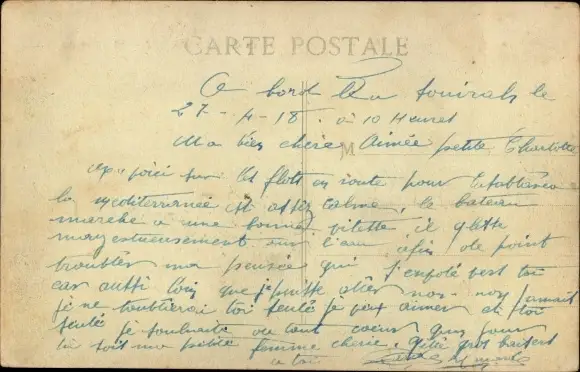 CARTE POSTALE
A bord le
27-4-18. à 10 Heures
Ma bien chère Aimée petite Charlotte
sur les flots en route pour
la mediterranée est assez calme, le bateau
marche a une bonne vitette, il
mayestueusement sur l'eau afin de point
troubler ma pensée qui vers toi
car aussi loin que je puitte non jamait
je ne toublierai toi seule je veux aimer et toi
seule je souhaite de tout coeur
tu soit ma petite femme cherie. gros baisers
a toi